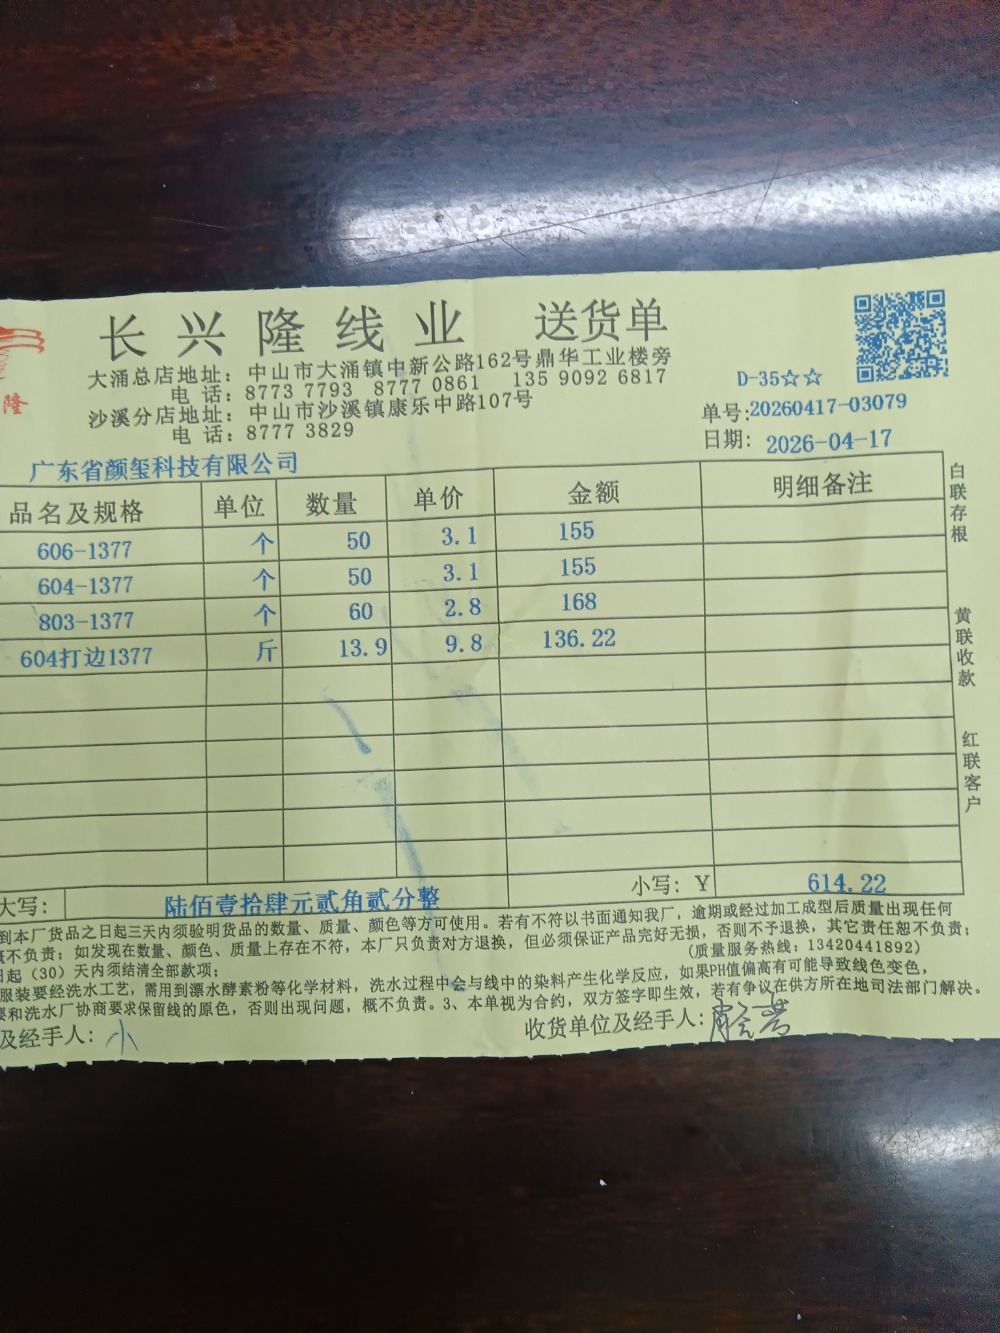 长兴隆线业 送货单
隆
大涌总店地址：中山市大涌镇中新公路162号鼎华工业楼旁
电 话：8773 7793 8777 0861 135 9092 6817
沙溪分店地址：中山市沙溪镇康乐中路107号
电 话：8777 3829
D-35☆☆
单号:20260417-03079
日期: 2026-04-17
广东省颜玺科技有限公司
品名及规格 单位 数量 单价 金额 明细备注
606-1377 个 50 3.1 155
604-1377 个 50 3.1 155
803-1377 个 60 2.8 168
604打边1377 斤 13.9 9.8 136.22
大写: 陆佰壹拾肆元贰角贰分整 小写: ¥ 614.22
白联存根
黄联收款
红联客户
到本厂货品之日起三天内须验明货品的数量、质量、颜色等方可使用。若有不符以书面通知我厂，逾期或经过加工成型后质量出现任何
不负责；如发现在数量、颜色、质量上存在不符，本厂只负责对方退换，但必须保证产品完好无损，否则不予退换，其它责任恕不负责；
日起（30）天内须结清全部款项； (质量服务热线：13420441892)
服装要经洗水工艺，需用到漂水酵素粉等化学材料，洗水过程中会与线中的染料产生化学反应，如果PH值偏高有可能导致线色变色，
和洗水厂协商要求保留线的原色，否则出现问题，概不负责。3、本单视为合约，双方签字即生效，若有争议在供方所在地司法部门解决。
及经手人: 小 收货单位及经手人: